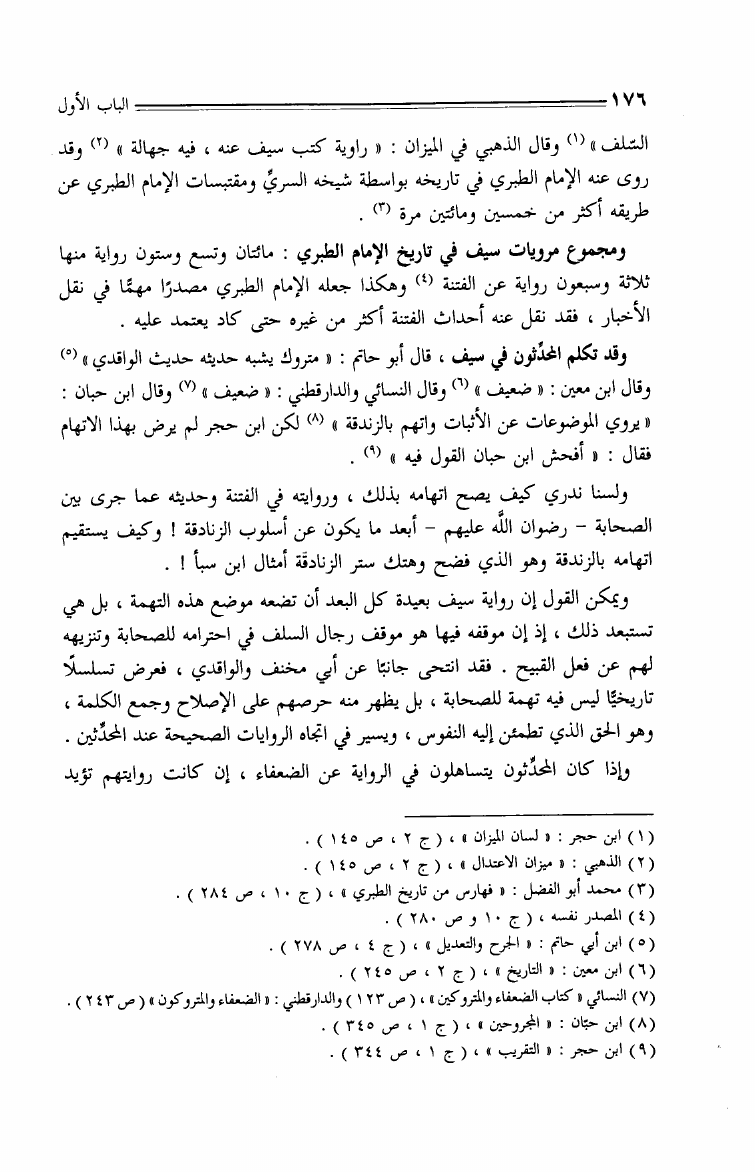 ١٧٦ الباب الأول
السّلف » (١) وقال الذهبي في الميزان : « راوية كتب سيف عنه ، فيه جهالة » (٢) وقد
روى عنه الإمام الطبري في تاريخه بواسطة شيخه السريِّ ومقتبسات الإمام الطبري عن
طريقه أكثر من خمسين ومائتين مرة (٣) .
ومجموع مرويات سيف في تاريخ الإمام الطبري : مائتان وتسع وستون رواية منها
ثلاثة وسبعون رواية عن الفتنة (٤) وهكذا جعله الإمام الطبري مصدرًا مهمًّا في نقل
الأخبار ، فقد نقل عنه أحداث الفتنة أكثر من غيره حتى كاد يعتمد عليه .
وقد تكلم المحدِّثون في سيف ، قال أبو حاتم : « متروك يشبه حديثه حديث الواقدي » (٥)
وقال ابن معين : « ضعيف » (٦) وقال النسائي والدارقطني : « ضعيف » (٧) وقال ابن حبان :
« يروي الموضوعات عن الأثبات واتهم بالزندقة » (٨) لكن ابن حجر لم يرض بهذا الاتهام
فقال : « أفحش ابن حبان القول فيه » (٩) .
ولسنا ندري كيف يصح اتهامه بذلك ، وروايته في الفتنة وحديثه عما جرى بين
الصحابة – رضوان اللَّه عليهم – أبعد ما يكون عن أسلوب الزنادقة ! وكيف يستقيم
اتهامه بالزندقة وهو الذي فضح وهتك ستر الزنادقَة أمثال ابن سبأ ! .
ويمكن القول إن رواية سيف بعيدة كل البعد أن تضعه موضع هذه التهمة ، بل هي
تستبعد ذلك ، إذ إن موقفه فيها هو موقف رجال السلف في احترامه للصحابة وتنزيهه
لهم عن فعل القبيح . فقد انتحى جانبًا عن أبي مخنف والواقدي ، فعرض تسلسلًا
تاريخيًّا ليس فيه تهمة للصحابة ، بل يظهر منه حرصهم على الإصلاح وجمع الكلمة ،
وهو الحق الذي تطمئن إليه النفوس ، ويسير في اتجاه الروايات الصحيحة عند المحدِّثين .
وإذا كان المحدِّثون يتساهلون في الرواية عن الضعفاء ، إن كانت روايتهم تؤيد
(١) ابن حجر : « لسان الميزان » ، ( ج ٢ ، ص ١٤٥ ) .
(٢) الذهبي : « ميزان الاعتدال » ، ( ج ٢ ، ص ١٤٥ ) .
(٣) محمد أبو الفضل : « فهارس من تاريخ الطبري » ، ( ج ١٠ ، ص ٢٨٤ ) .
(٤) المصدر نفسه ، ( ج ١٠ و ص ٢٨٠ ) .
(٥) ابن أبي حاتم : « الجرح والتعديل » ، ( ج ٤ ، ص ٢٧٨ ) .
(٦) ابن معين : « التاريخ » ، ( ج ٢ ، ص ٢٤٥ ) .
(٧) النسائي « كتاب الضعفاء والمتروكين » ، ( ص ١٢٣ ) والدارقطني : « الضعفاء والمتروكون » ( ص ٢٤٣ ) .
(٨) ابن حبّان : « المجروحين » ، ( ج ١ ، ص ٣٤٥ ) .
(٩) ابن حجر : « التقريب » ، ( ج ١ ، ص ٣٤٤ ) .